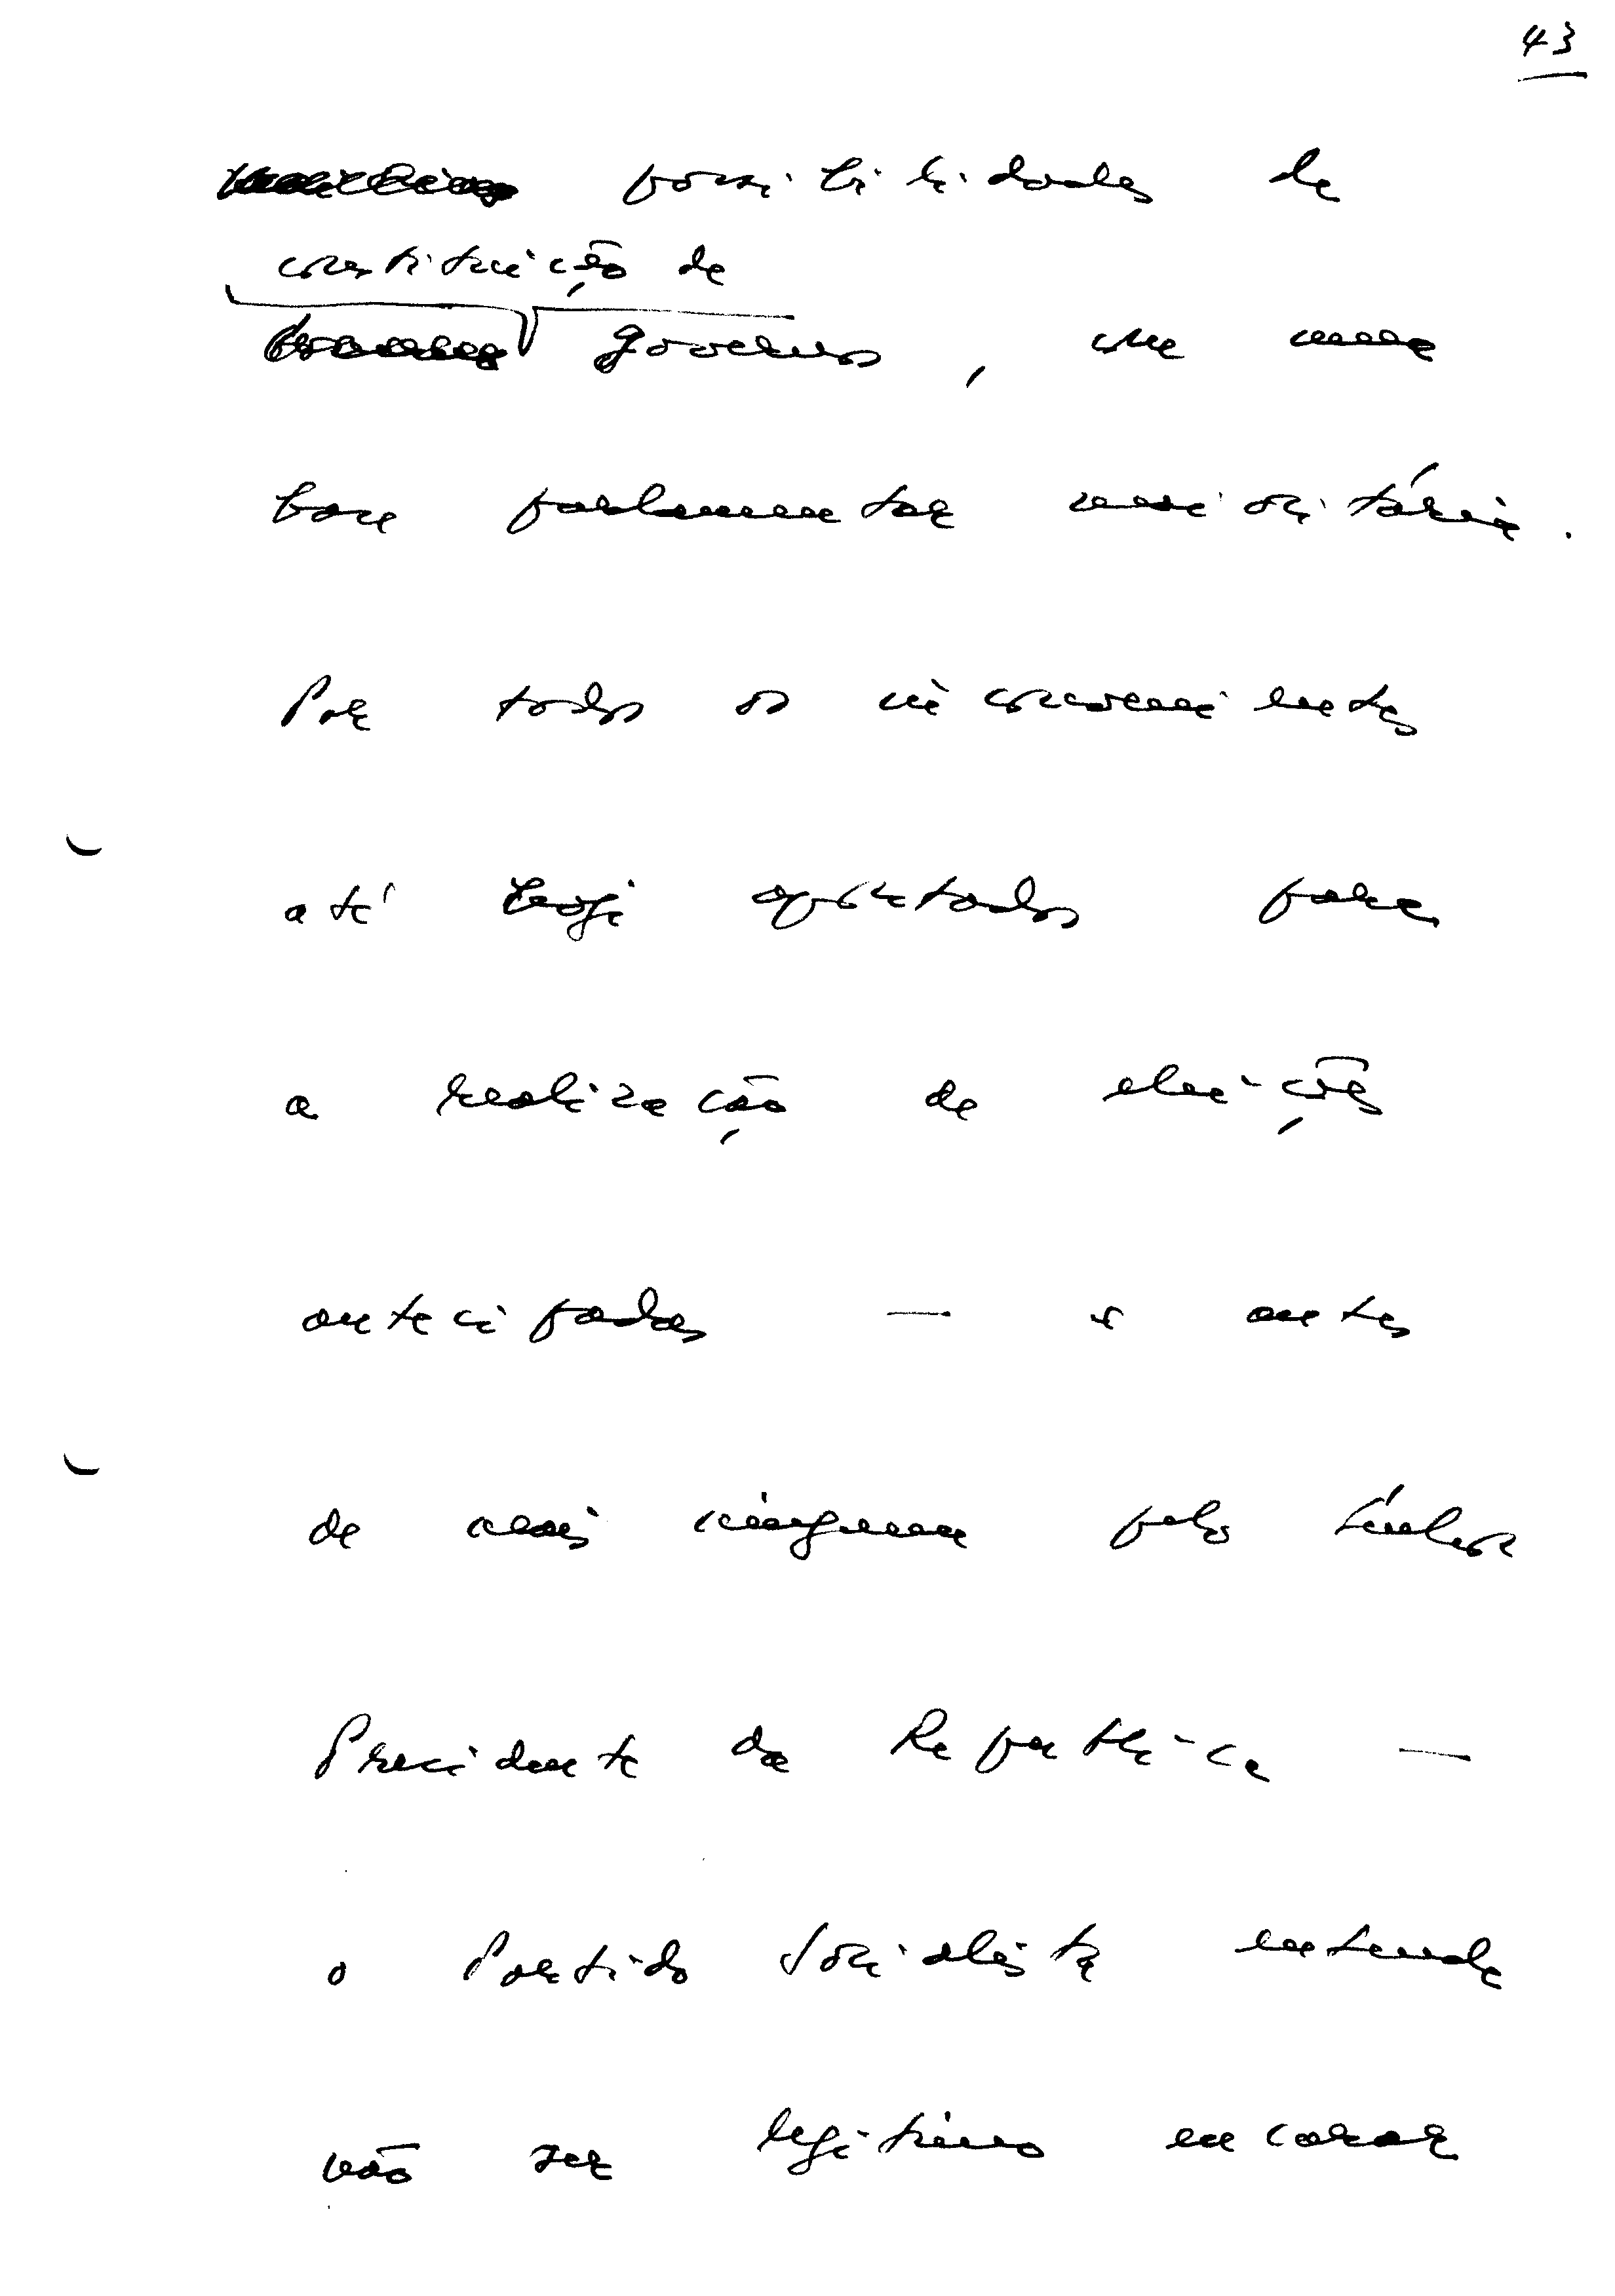 43
possibilidades de
constituição de
governos, com uma
base parlamentar maioritária.
Por todos os inconvenientes
até hoje apontados para
a realização de eleições
antecipadas — e antes
de mais ninguem pelo Senhor
Presidente da República —
o Partido Socialista entende
não ser legítimo encarar